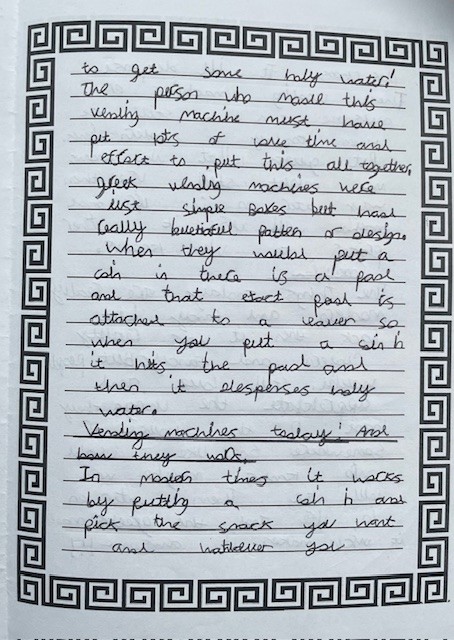 to get some holy water!
The person who made this
vending machine must have
put lots of love time and
effort to put this all together,
greek vending machines were
just simple boxes but had
really buetiful patten or design.
When they would put a
coin in there is a pad
and that exact pad is
attached to a leaver so
when you put a coin in
it hits the pad and
then it despenses holy
water.
Vending machines today! And
how they work.
In modern times it works
by putting a coin in and
pick the snack you want
and you